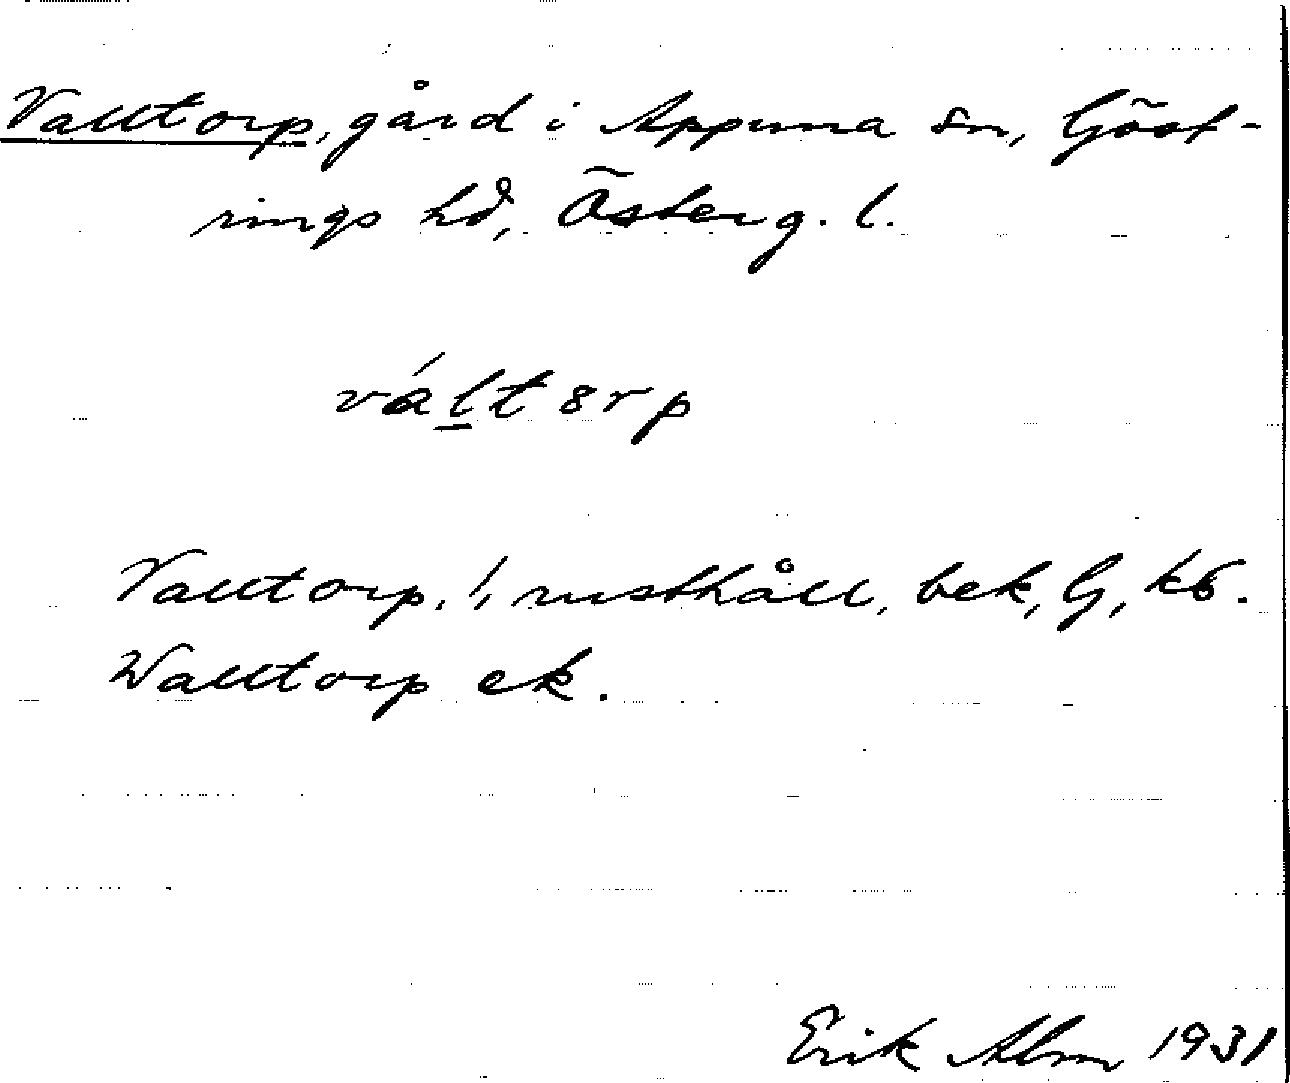 Valltorp, gård i Appuna sn, Göst-
rings hd, Österg. l.
váltorp
Valltorp, 1, rusthåll, bek, G, kb.
Walltorp ek.
Erik Alm 1931